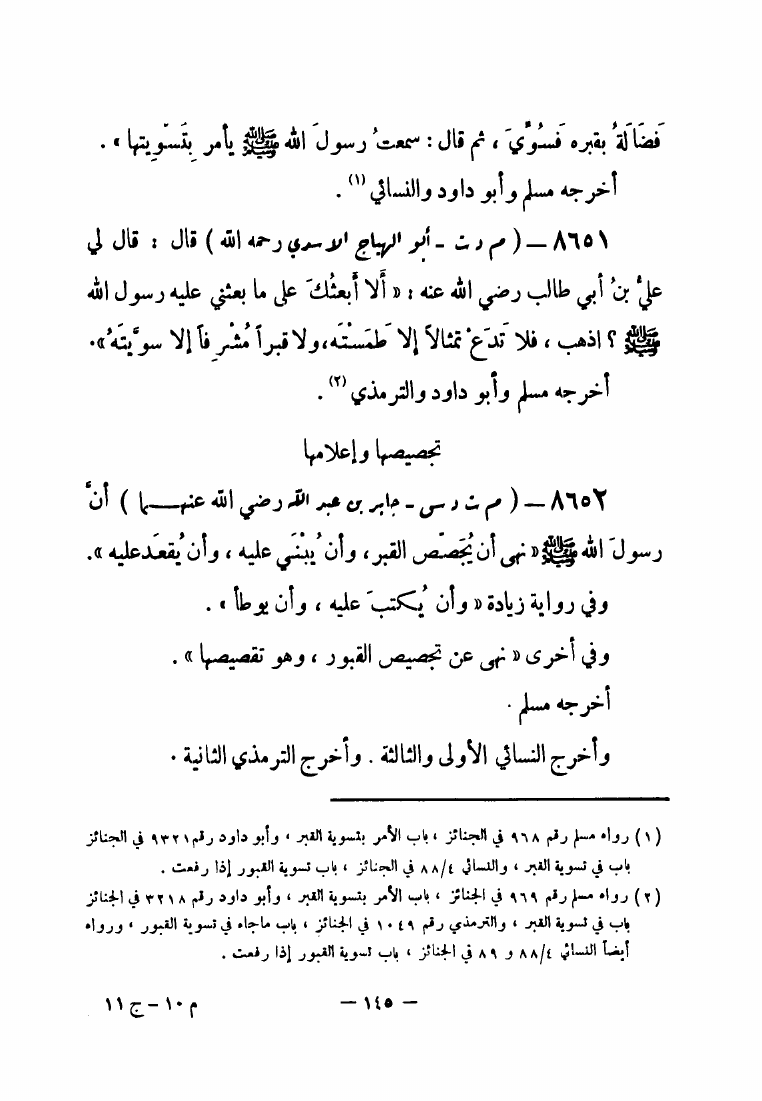 فَضَالَةُ بقبره فَسُوِّيَ ، ثم قال : سمعتُ رسولَ الله ﷺ يأمر بِتَسْوِيتها » .
أخرجه مسلم وأبو داود والنسائي (١) .
٨٦٥١ – ( م د ت - أبو الهياج الاسدي رحمه الله ) قال : قال لي
عليُّ بنُ أبي طالب رضي الله عنه : « ألا أَبعثُكَ على ما بعثني عليه رسول الله
ﷺ ؟ اذهب ، فلا تَدَعْ تمثالاً إلا طَمَسْتَه، ولا قبراً مُشْرِفاً إلا سوَّيتَهُ ».
أخرجه مسلم وأبو داود والترمذي (٢) .
تجصيصها وإعلامها
٨٦٥٢ – ( م ت د س - جابر بن عبد الله رضي الله عنهـــما ) أنَّ
رسولَ الله ﷺ « نهى أن يُجَصَّص القبر، وأن يُبْنَى عليه ، وأن يُقعَدعليه ».
وفي رواية زيادة « وأن يُكتبَ عليه ، وأن يوطأ » .
وفي أخرى « نهى عن تجصيص القبور ، وهو تقصيصها » .
أخرجه مسلم .
وأخرج النسائي الأولى والثالثة . وأخرج الترمذي الثانية .
(١) رواه مسلم رقم ٩٦٨ في الجنائز ، باب الأمر بتسوية القبر ، وأبو داود رقم ٩٣٢١ في الجنائز
باب في تسوية القبر ، والنسائي ٨٨/٤ في الجنائز ، باب تسوية القبور إذا رفعت .
(٢) رواه مسلم رقم ٩٦٩ في الجنائز ، باب الأمر بتسوية القبر ، وأبو داود رقم ٣٢١٨ في الجنائز
باب في تسوية القبر ، والترمذي رقم ١٠٤٩ في الجنائز ، باب ماجاء في تسوية القبور ، ورواه
أيضاً النسائي ٨٨/٤ و ٨٩ في الجنائز ، باب تسوية القبور إذا رفعت .
– ١٤٥ –
م ١٠ – ج ١١